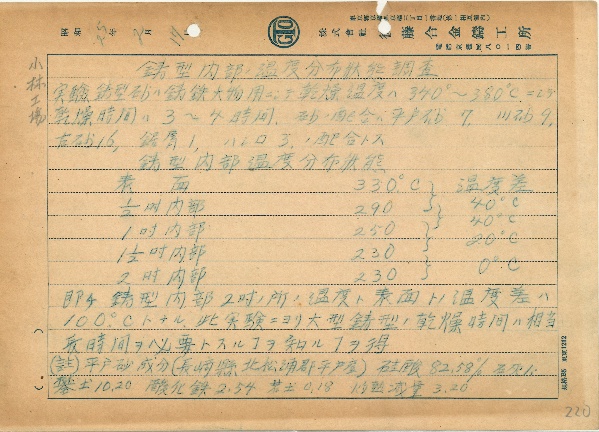 昭和 年 2月
株式会社 後藤合金鑄工所
小林工場
鋳型内部ノ温度分布状態調査
実驗鋳型砂ハ鋳鉄大物用ニシテ乾燥温度ハ340°～380°Cニシテ
乾燥時間ハ3～4時间、砂ノ配合ハ平戸砂 7, 川砂9,
古砂16, 鋸屑1, ハシロ3, ノ配合トス
鋳型内部温度分布状態
表面 330°C 温度差
½吋内部 290 40°C
1吋内部 250 40°C
1½吋内部 230 20°C
2吋内部 230 0°C
即チ鋳型内部2吋ノ所ノ温度ト表面トノ温度差ハ
100°Cトナル, 此実験ニヨリ大型鋳型ノ乾燥時间ハ相当
長時间ヲ必要トスルヿヲ知ルヿヲ得
(註) 平戸砂成分(長崎縣北松浦郡平戸産) 硅酸 82.58%
礬土10.20 酸化鉄2.54 苦土0.18 灼熱減量3.20
220